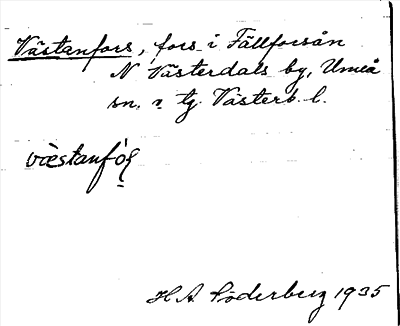 Västanfors, fors i Fällforsån
N Västerdals by, Umeå
sn. o. tg. Västerb. l.
H A Söderberg 1935